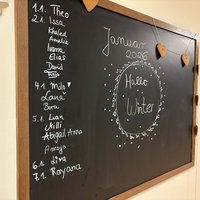 1.1. Theo
2.1. Issa
Khaled
Amalie
Ivana
Elias
David
4.1. Milo
Lana
5.1. Lian
Nilli
Abigail Anna
6.1. Lina
7.1. Rayana
Januar
2026
Hallo
Winter